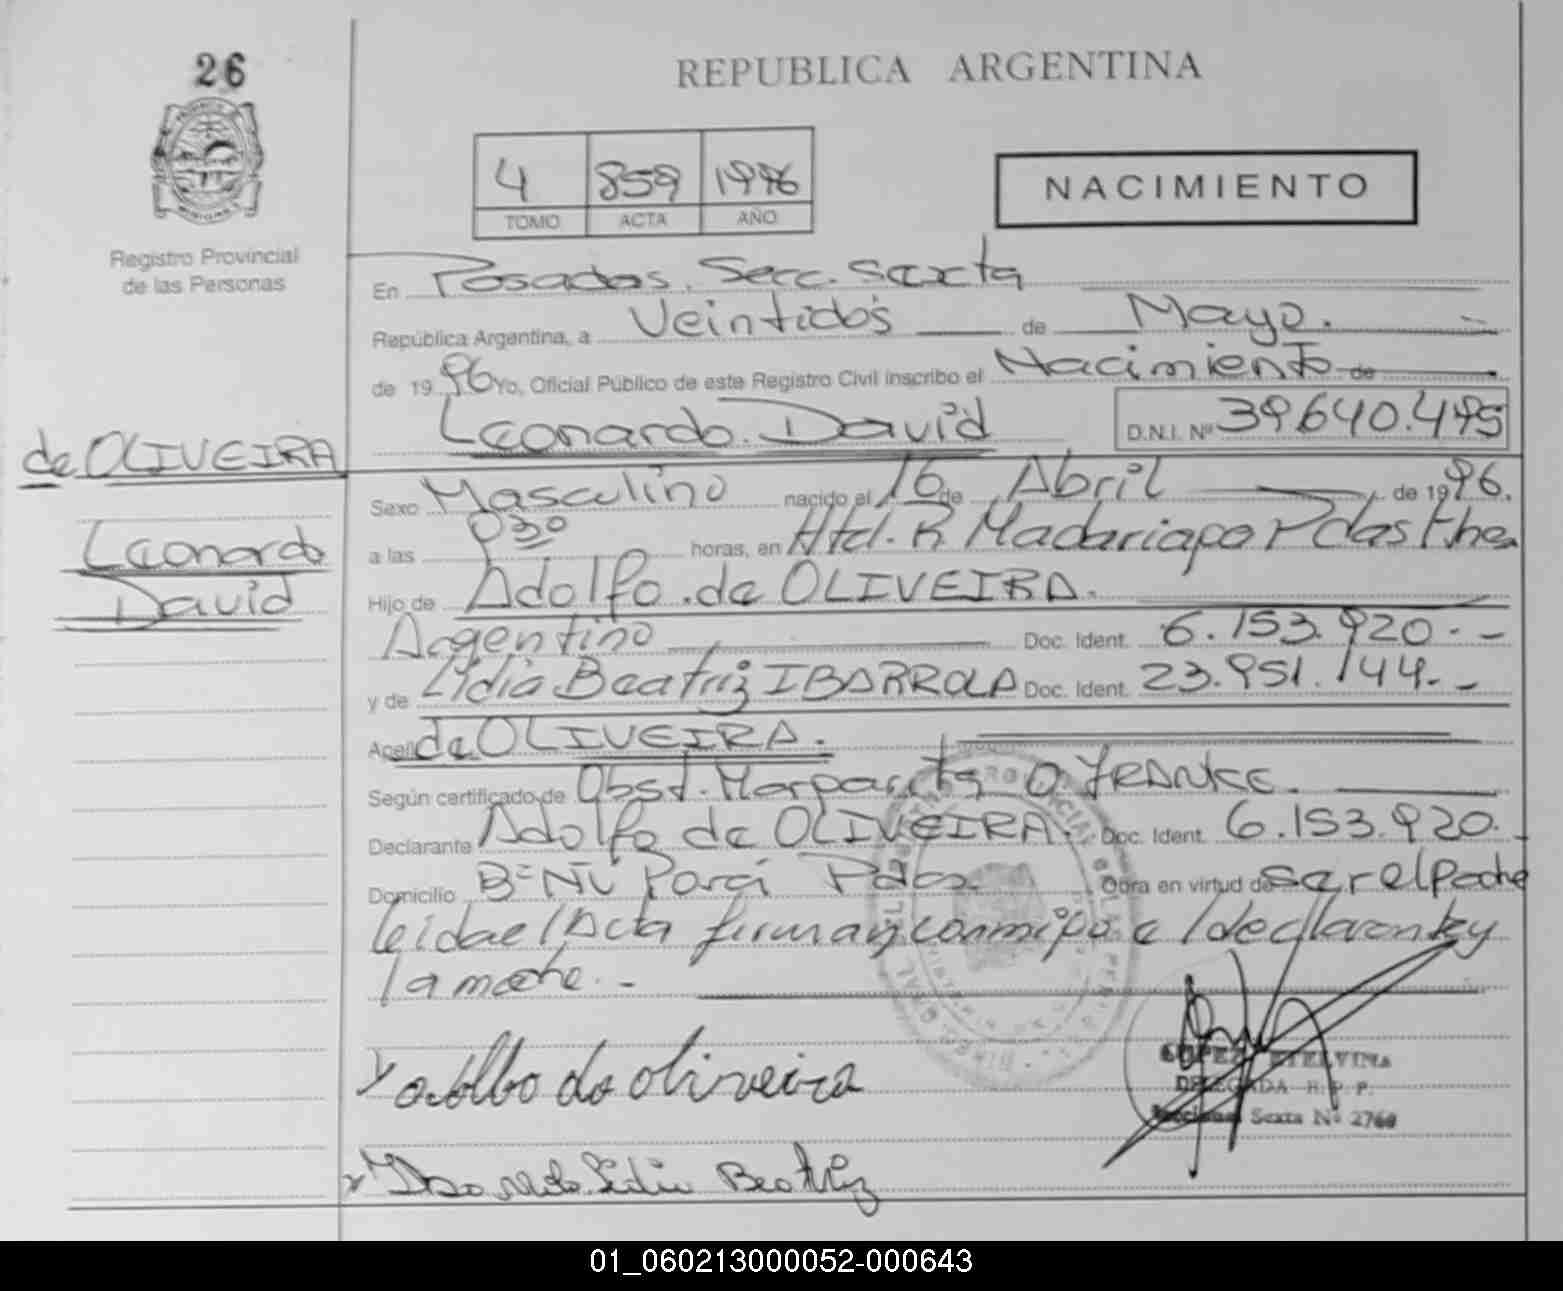 26
REPUBLICA ARGENTINA
4 859 1996
TOMO ACTA AÑO
NACIMIENTO
Registro Provincial
de las Personas
En Posadas. Secc. Sexta
República Argentina, a Veintidós de Mayo.
de 1996 Yo, Oficial Público de este Registro Civil inscribo el Nacimiento de
Leonardo David D.N.I. Nº 39.640.495
de OLIVEIRA
Leonardo
David
Sexo Masculino nacido el 16 de Abril de 1996.
a las 03º horas, en Htal. R. Madariaga Pdas
Hijo de Adolfo de OLIVEIRA.
Argentino Doc. Ident. 6.153.920.-
y de Lidia Beatriz IBARROLA Doc. Ident. 23.951.144.-
Apell. de OLIVEIRA.
Según certificado de Obst. Margarita O. FRANKE.
Declarante Adolfo de OLIVEIRA. Doc. Ident. 6.153.920.-
Domicilio Bº Ñú Porá Pdas Obra en virtud de ser el padre
leida el Acta firman conmigo el declarante y
la madre.-
adolfo de oliveira
LOPEZ ETELVINA
DELEGADA R. P. P.
Seccional Sexta Nº 2760
Lidia Beatriz
01_060213000052-000643